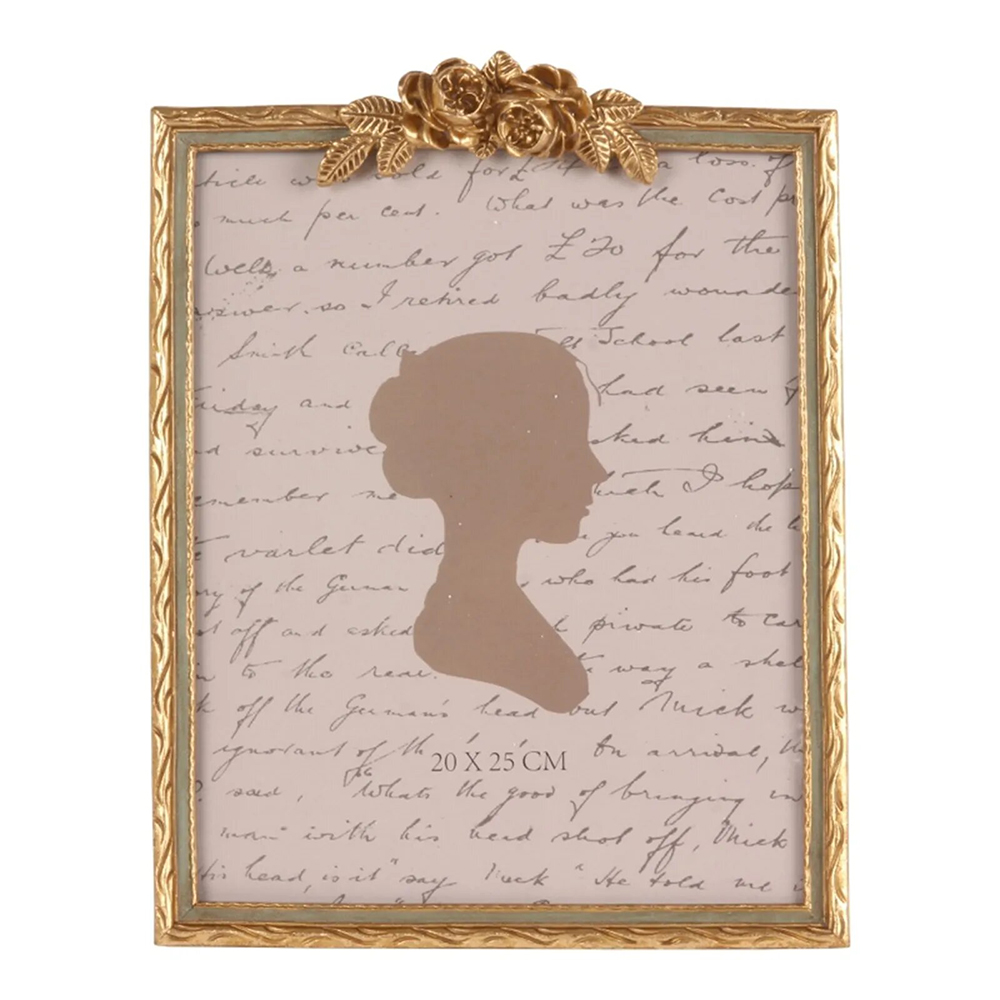 for £ a loss. of
much per cent. What was the Cost pr
Well, a number got £20 for the
so I retired badly wounde
Smith School last
and had seen
sked him
me I hop
varlet did you heard the
of the German who had his foot
off and asked private to car
to the rear. way a shel
off the German's head out Mick w
ignorant of th On arrival,
20 X 25 CM
said, "Whats the good of bringing in
man" with his head shot off, Mick
His head, is it" say Mick "He told me i